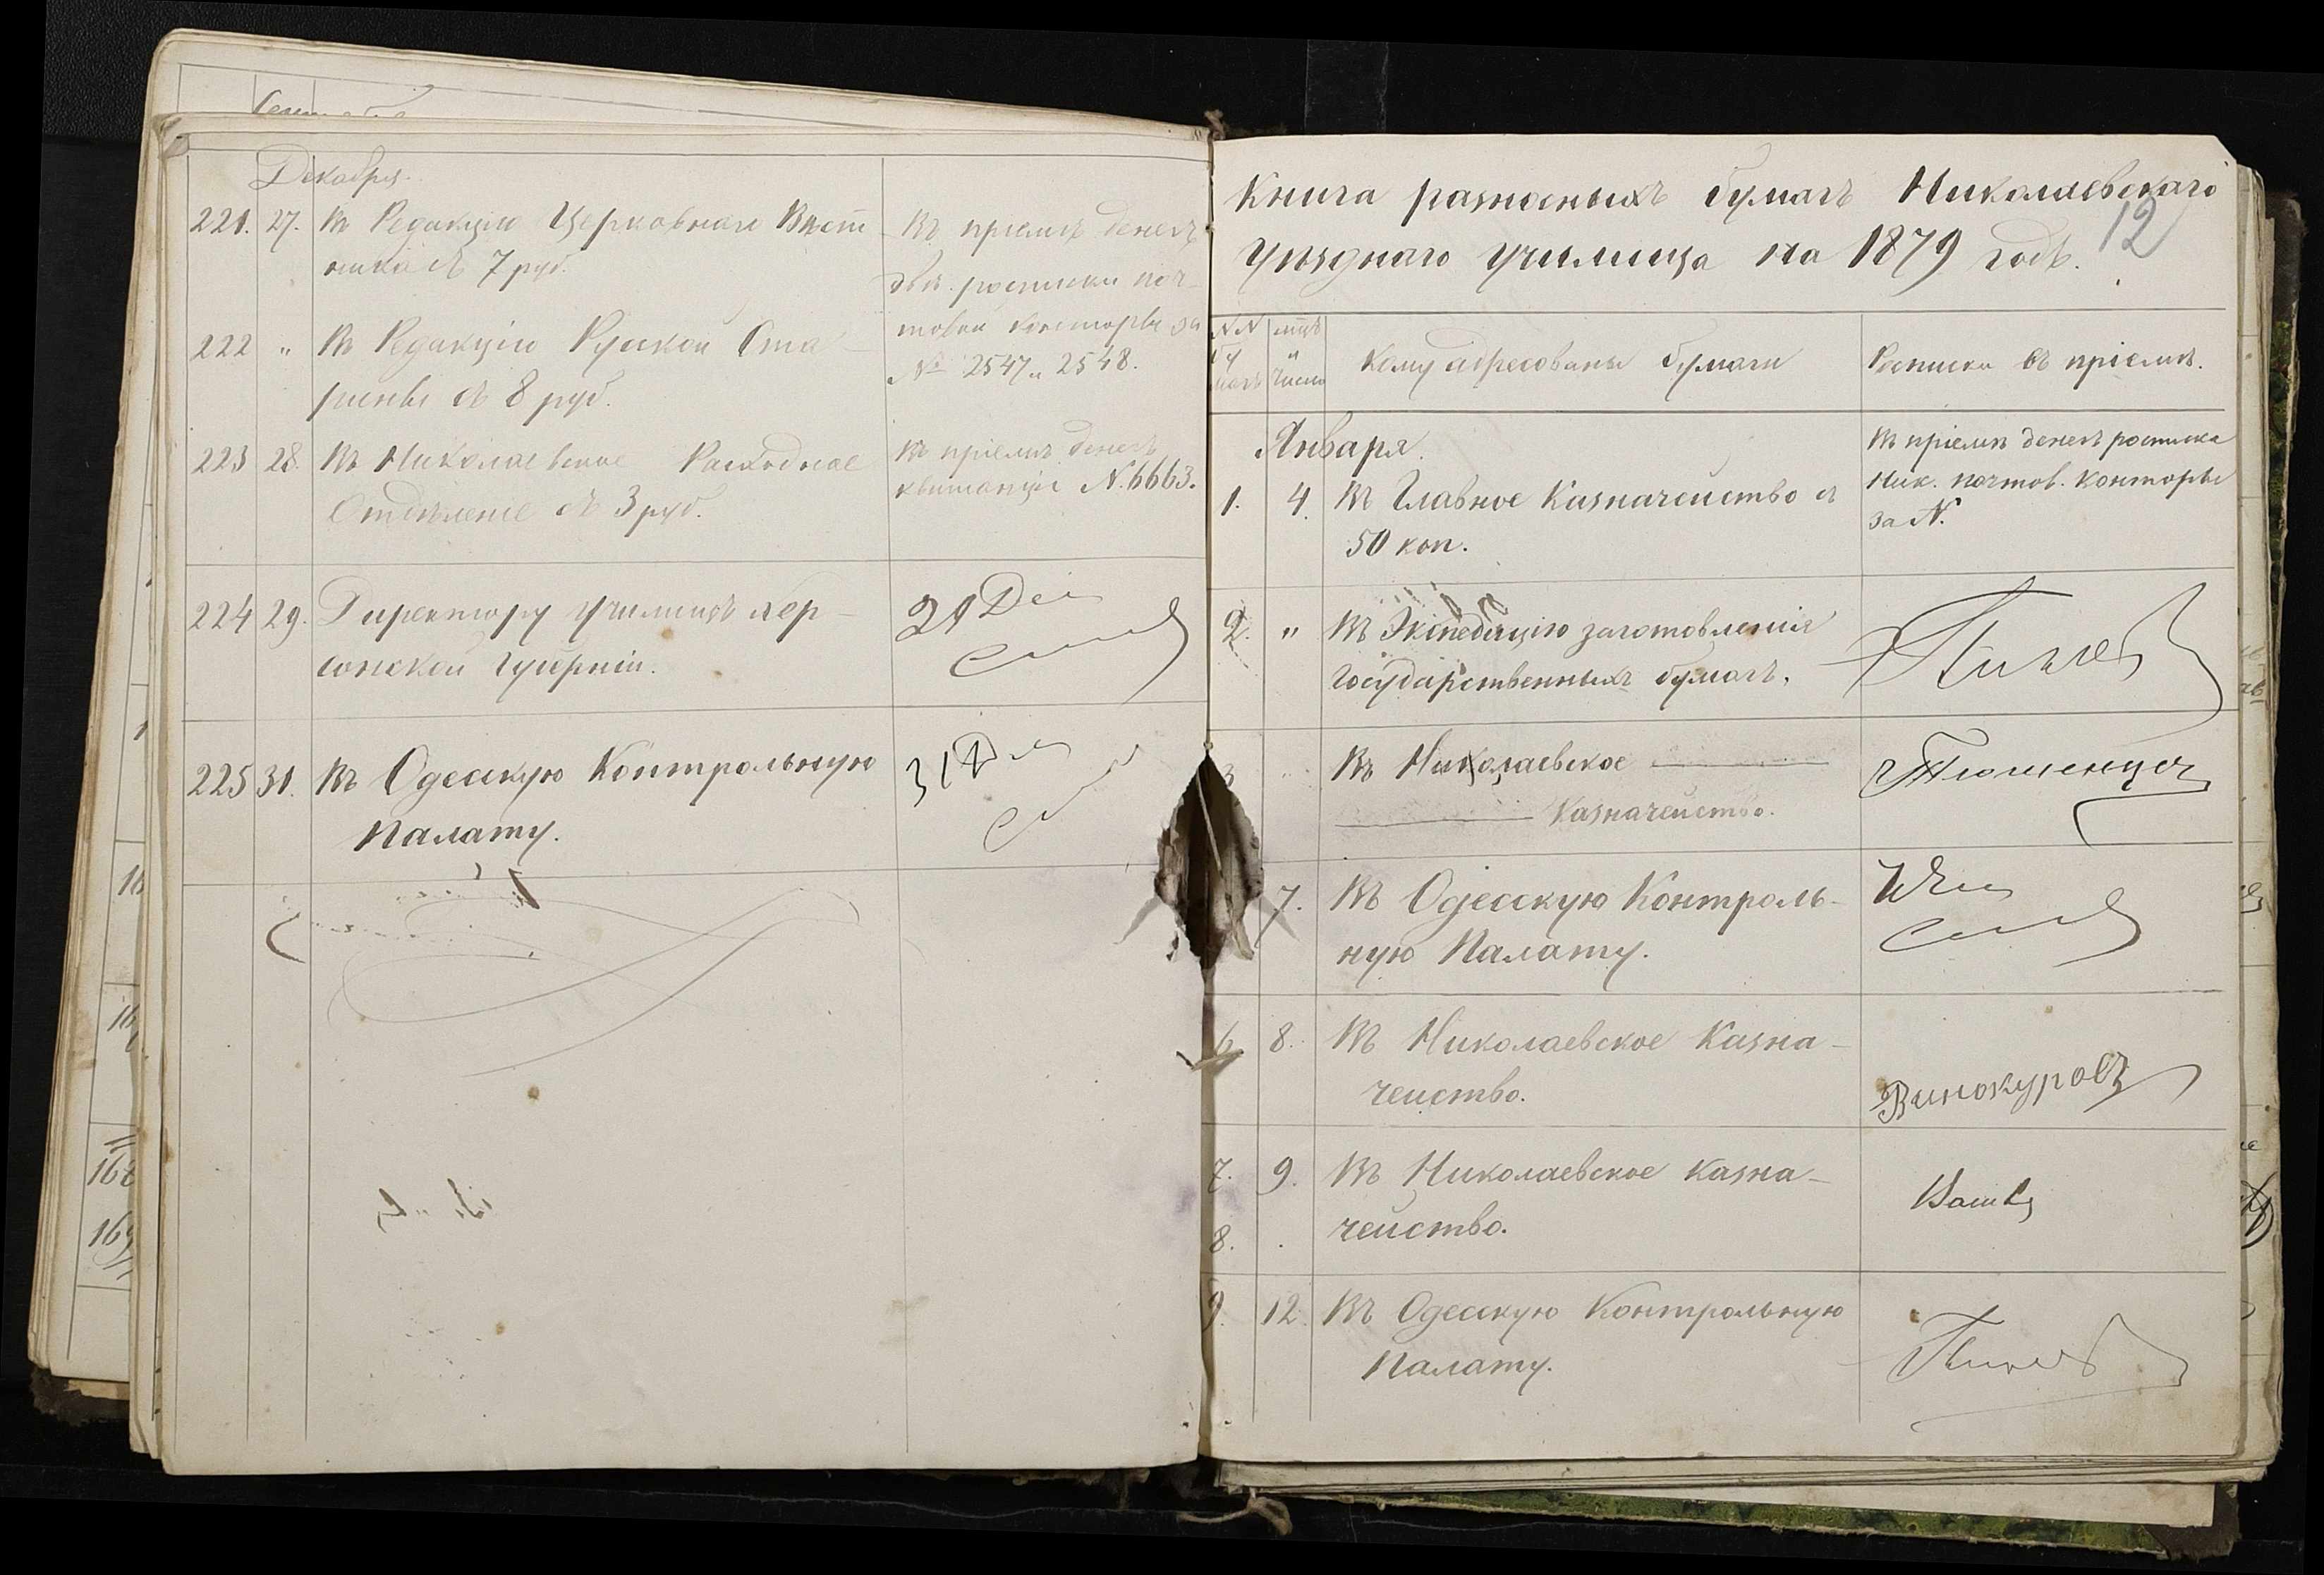 Декабря.
221. 27. Въ Редакцію Церковнаго Вѣст-
ника съ 7 руб.
Въ пріемѣ денегъ
двѣ росписки поч-
товой конторы за
№ 2547 и 2548.
222 " Въ Редакцію Русской Ста-
рины съ 8 руб.
223 28. Въ Николаевское Расходное
Отдѣленіе съ 3 руб.
Въ пріемѣ денегъ
квитанція N. 6663.
224 29. Директору училищъ Хер-
сонской Губерніи.
29 Де
225 31. Въ Одесскую Контрольную
Палату.
31 Д
Книга разносныхъ бумагъ Николаевскаго
уѣзднаго училища на 1879 годъ.
12
NN
бу
магъ
мцъ
и
число
Кому адресованы бумаги
Росписки въ пріемѣ.
Января.
1. 4. Въ Главное Казначейство съ
50 коп.
Въ пріемѣ денегъ росписка
Ник. почтов. конторы
за N.
2. " Въ Экспедицію заготовленія
Государственныхъ бумагъ.
3 " Въ Николаевское
Казначейство.
7. Въ Одесскую Контроль-
ную Палату.
6. 8. Въ Николаевское Казна-
чейство.
Винокуровъ
7. 9. Въ Николаевское Казна-
8. . чейство.
9. 12. Въ Одесскую Контрольную
Палату.